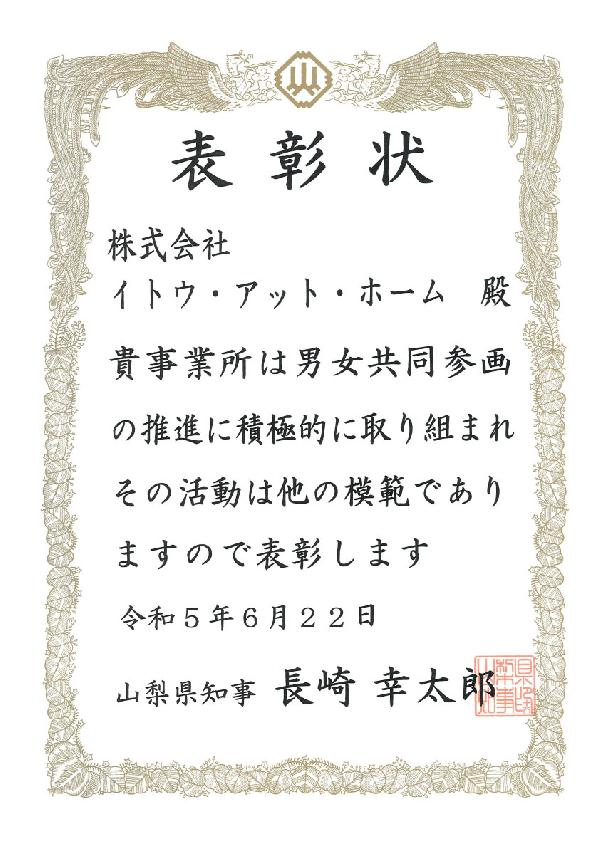 表彰状
株式会社
イトウ・アット・ホーム 殿
貴事業所は男女共同参画
の推進に積極的に取り組まれ
その活動は他の模範であり
ますので表彰します
令和５年６月２２日
山梨県知事 長崎 幸太郎